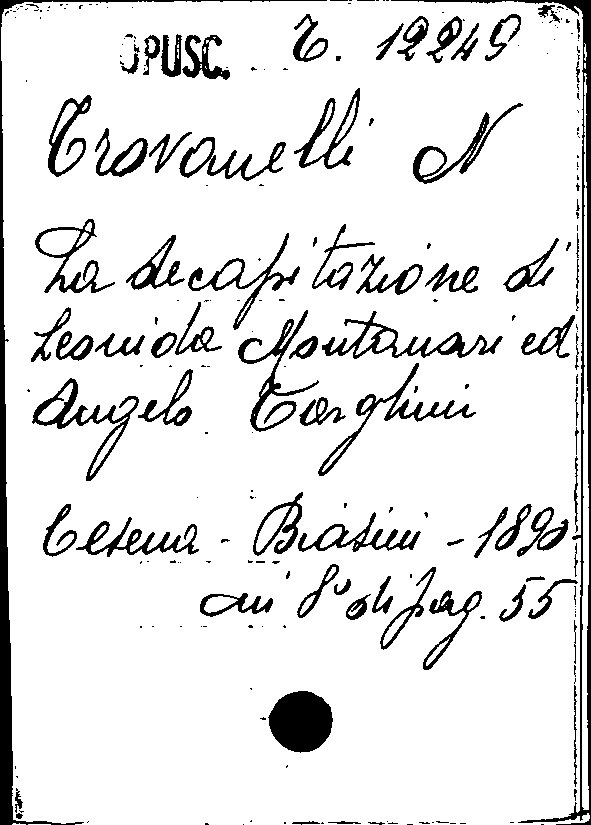 OPUSC. T. 12249
Trovanelli N
La decapitazione di
Leonida Montanari ed
Angelo Targhini
Cesena - Biasini - 1890-
in 8° di pag. 55